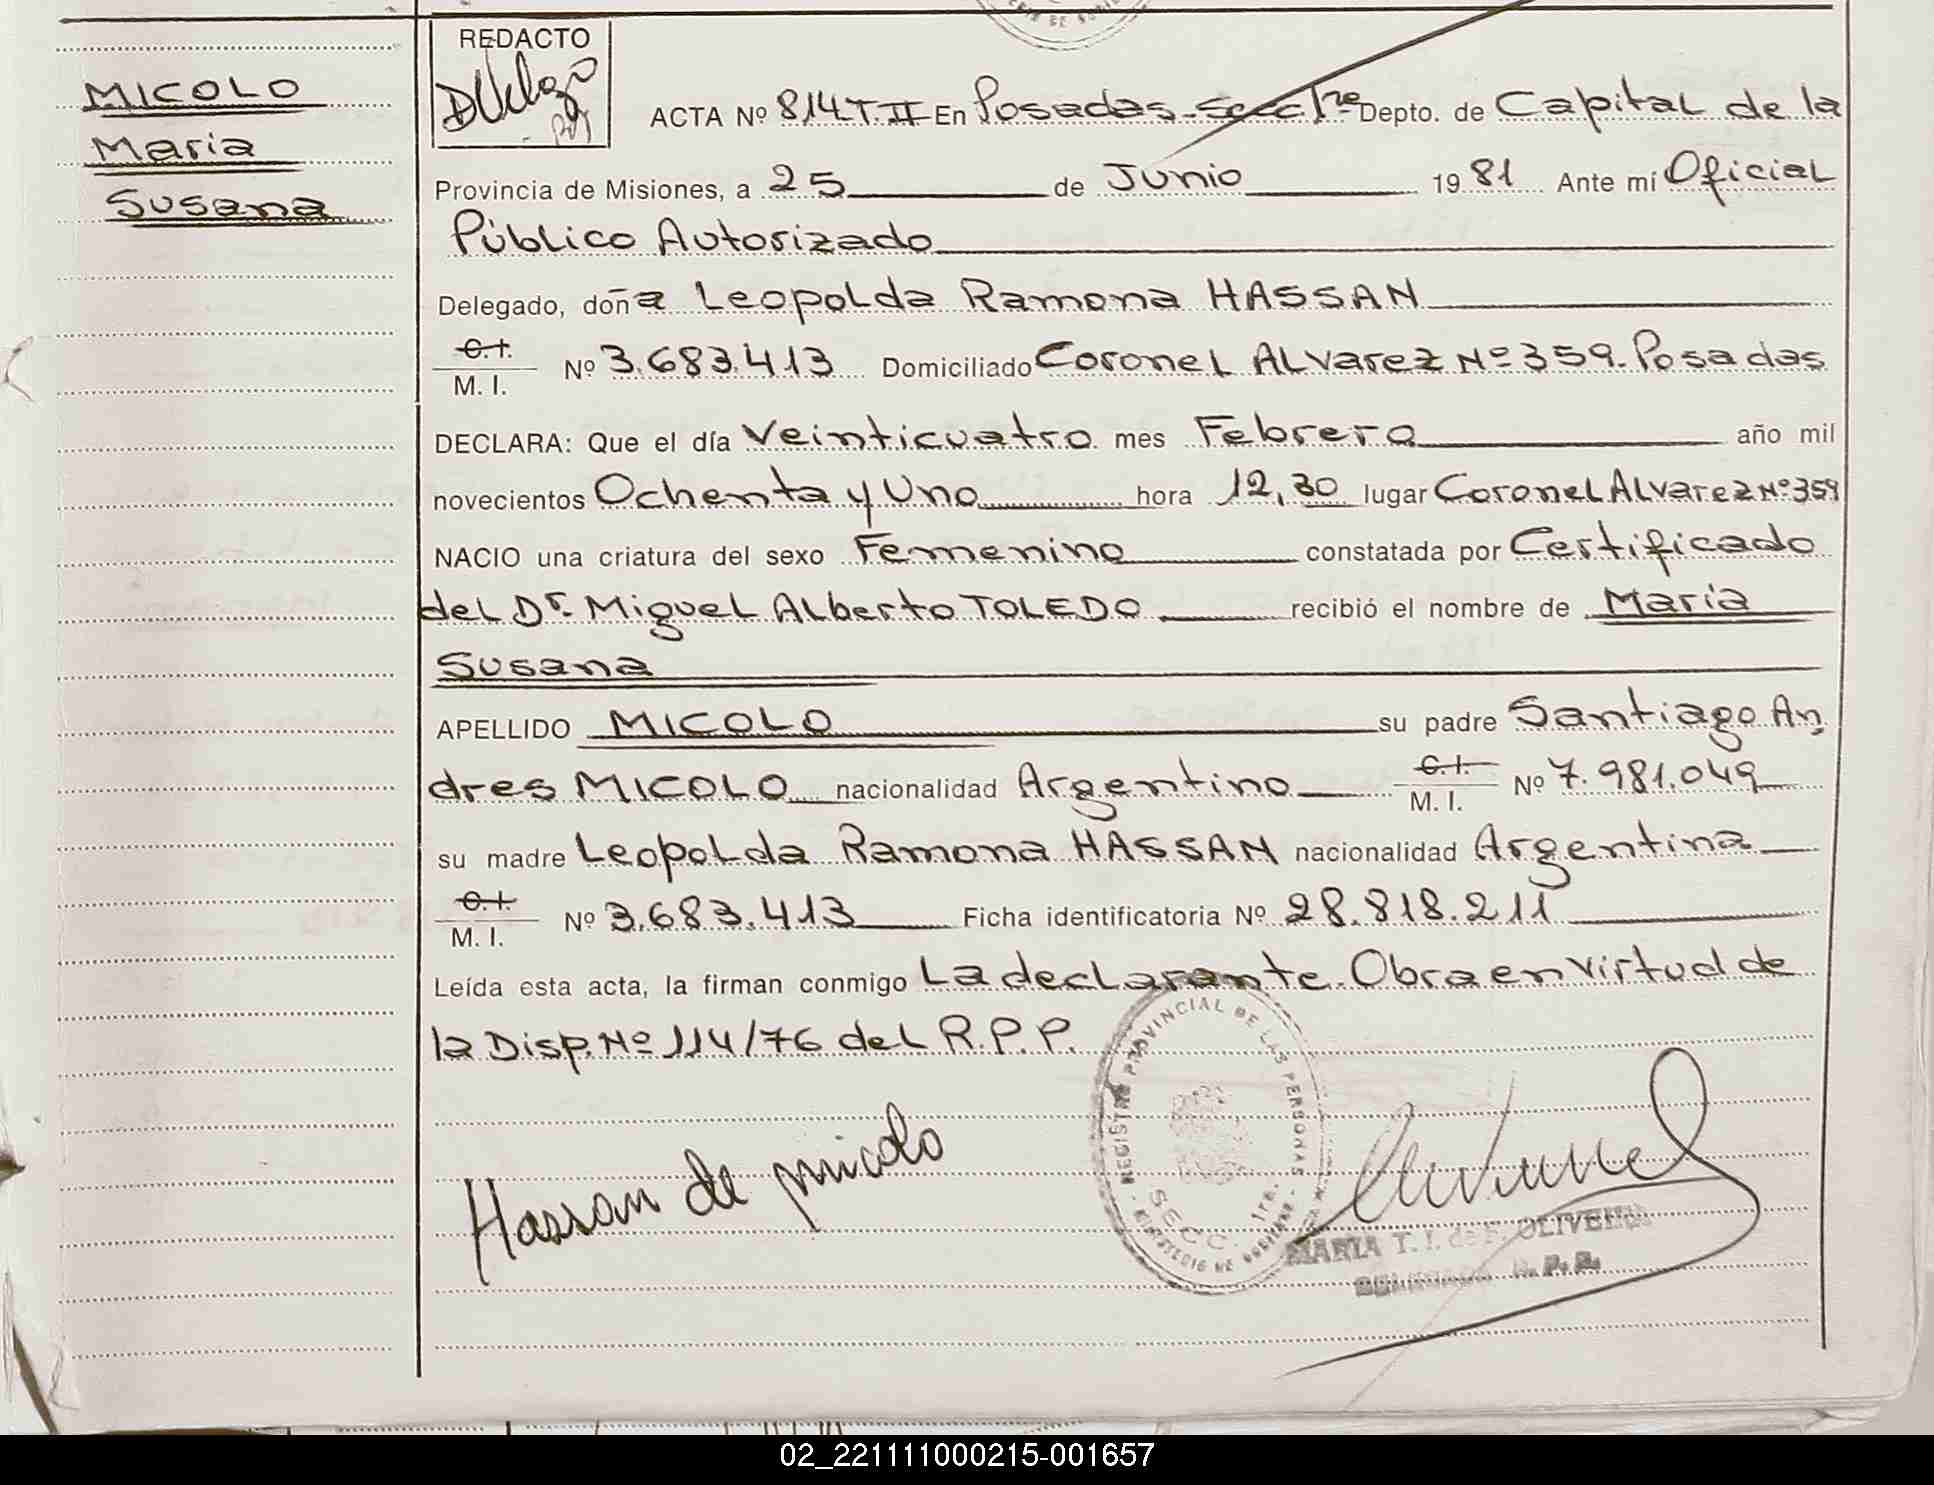 MICOLO
Maria
Susana
REDACTO
ACTA Nº 814 T.II En Posadas-Secc 1ra Depto. de Capital de la
Provincia de Misiones, a 25 de Junio 1981 Ante mí Oficial
Público Autorizado
Delegado, doña Leopolda Ramona HASSAN
C.I.
M. I. Nº 3.683.413 Domiciliado Coronel Alvarez Nº 359. Posadas
DECLARA: Que el día Veinticuatro mes Febrero año mil
novecientos Ochenta y Uno hora 12,30 lugar Coronel Alvarez Nº 359
NACIO una criatura del sexo Femenino constatada por Certificado
del Dr. Miguel Alberto TOLEDO recibió el nombre de Maria
Susana
APELLIDO MICOLO su padre Santiago An,
dres MICOLO nacionalidad Argentino C.I. M. I. Nº 7.981.049
su madre Leopolda Ramona HASSAN nacionalidad Argentina
C.I.
M. I. Nº 3.683.413 Ficha identificatoria Nº 28.818.211
Leída esta acta, la firman conmigo La declarante. Obra en virtud de
la Disp. Nº 114/76 del R.P.P.
REGISTRO PROVINCIAL DE LAS PERSONAS
SECC. 1ra.
Hassan de Micolo
MARIA T. I. de F. OLIVEIRA
02_221111000215-001657